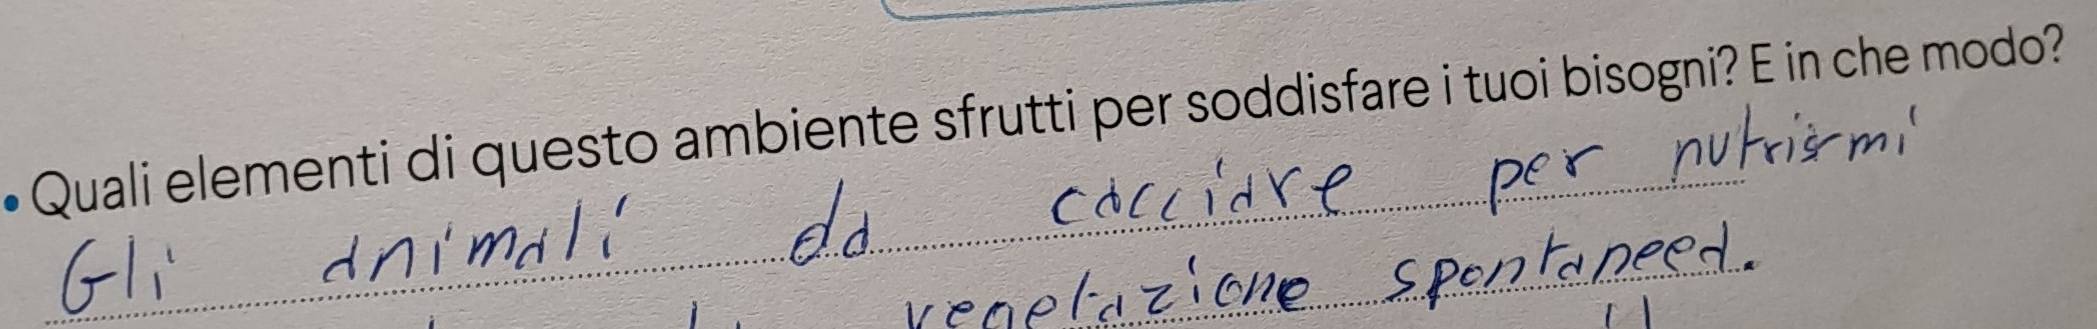 • Quali elementi di questo ambiente sfrutti per soddisfare i tuoi bisogni? E in che modo?
Gli animali da cacciare per nutrirmi
vegetazione spontanea.